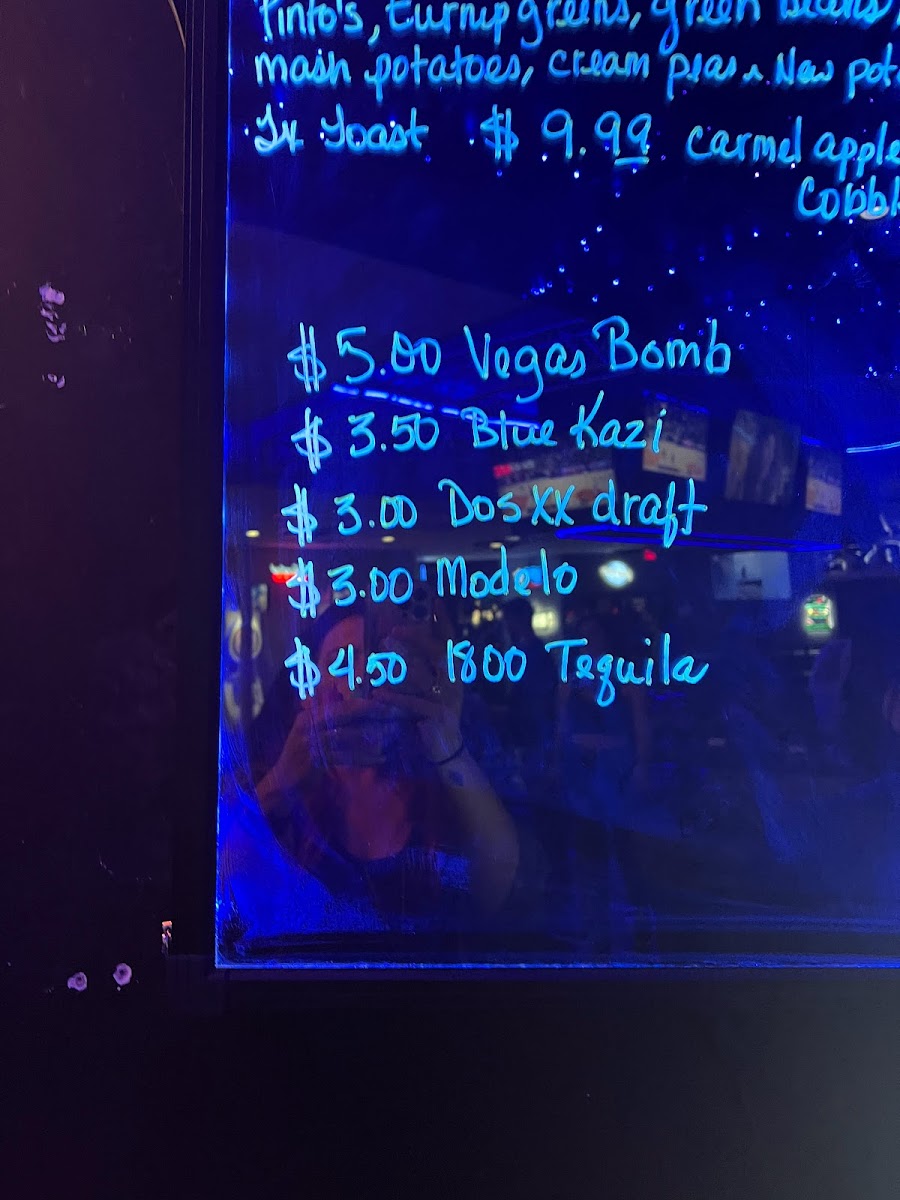 Pinto's, turnip greens, green beans,
mash potatoes, cream peas & New pot
Tx Toast $ 9.99 carmel apple
Cobbl
$ 5.00 Vegas Bomb
$ 3.50 Blue Kazi
$ 3.00 Dos XX draft
$ 3.00 Modelo
$ 4.50 1800 Tequila